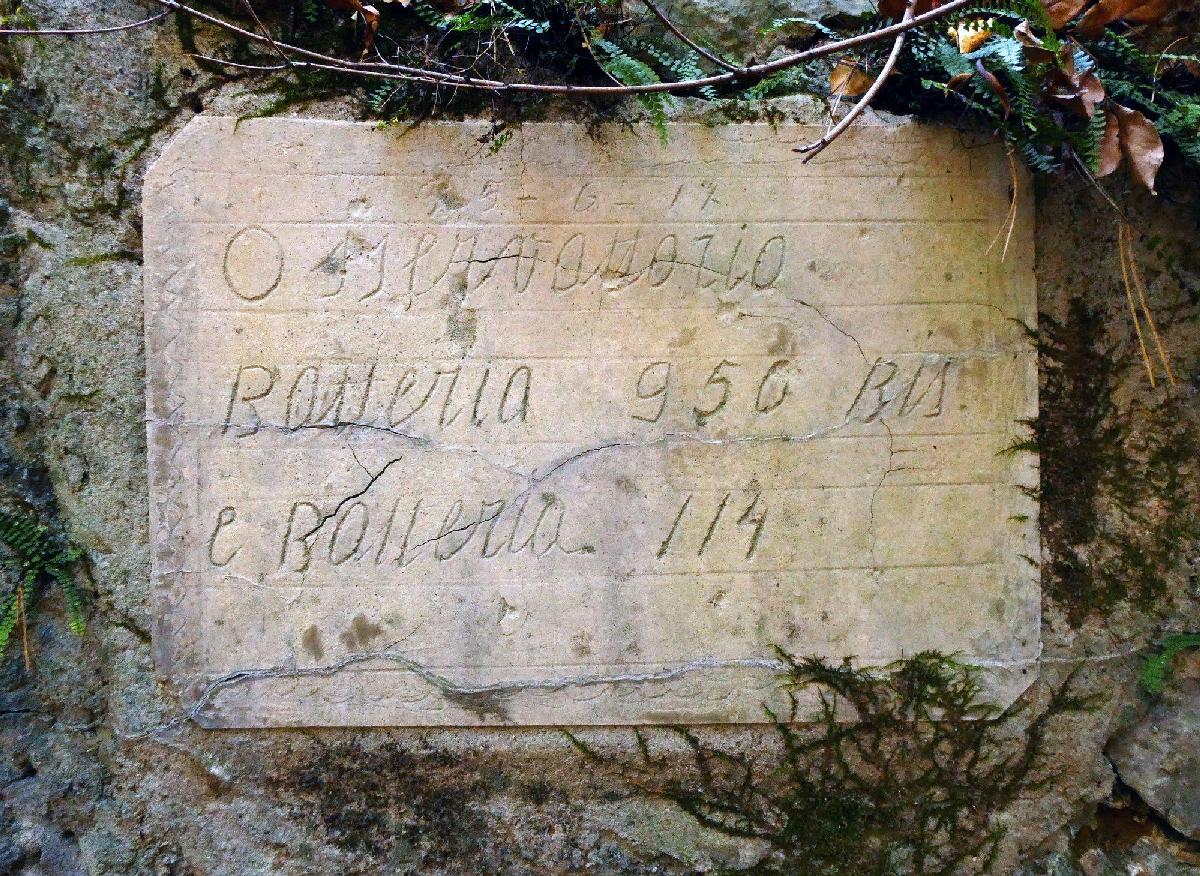 25-6-17
Osservatorio
Batteria 950 Bis
e Batteria 114